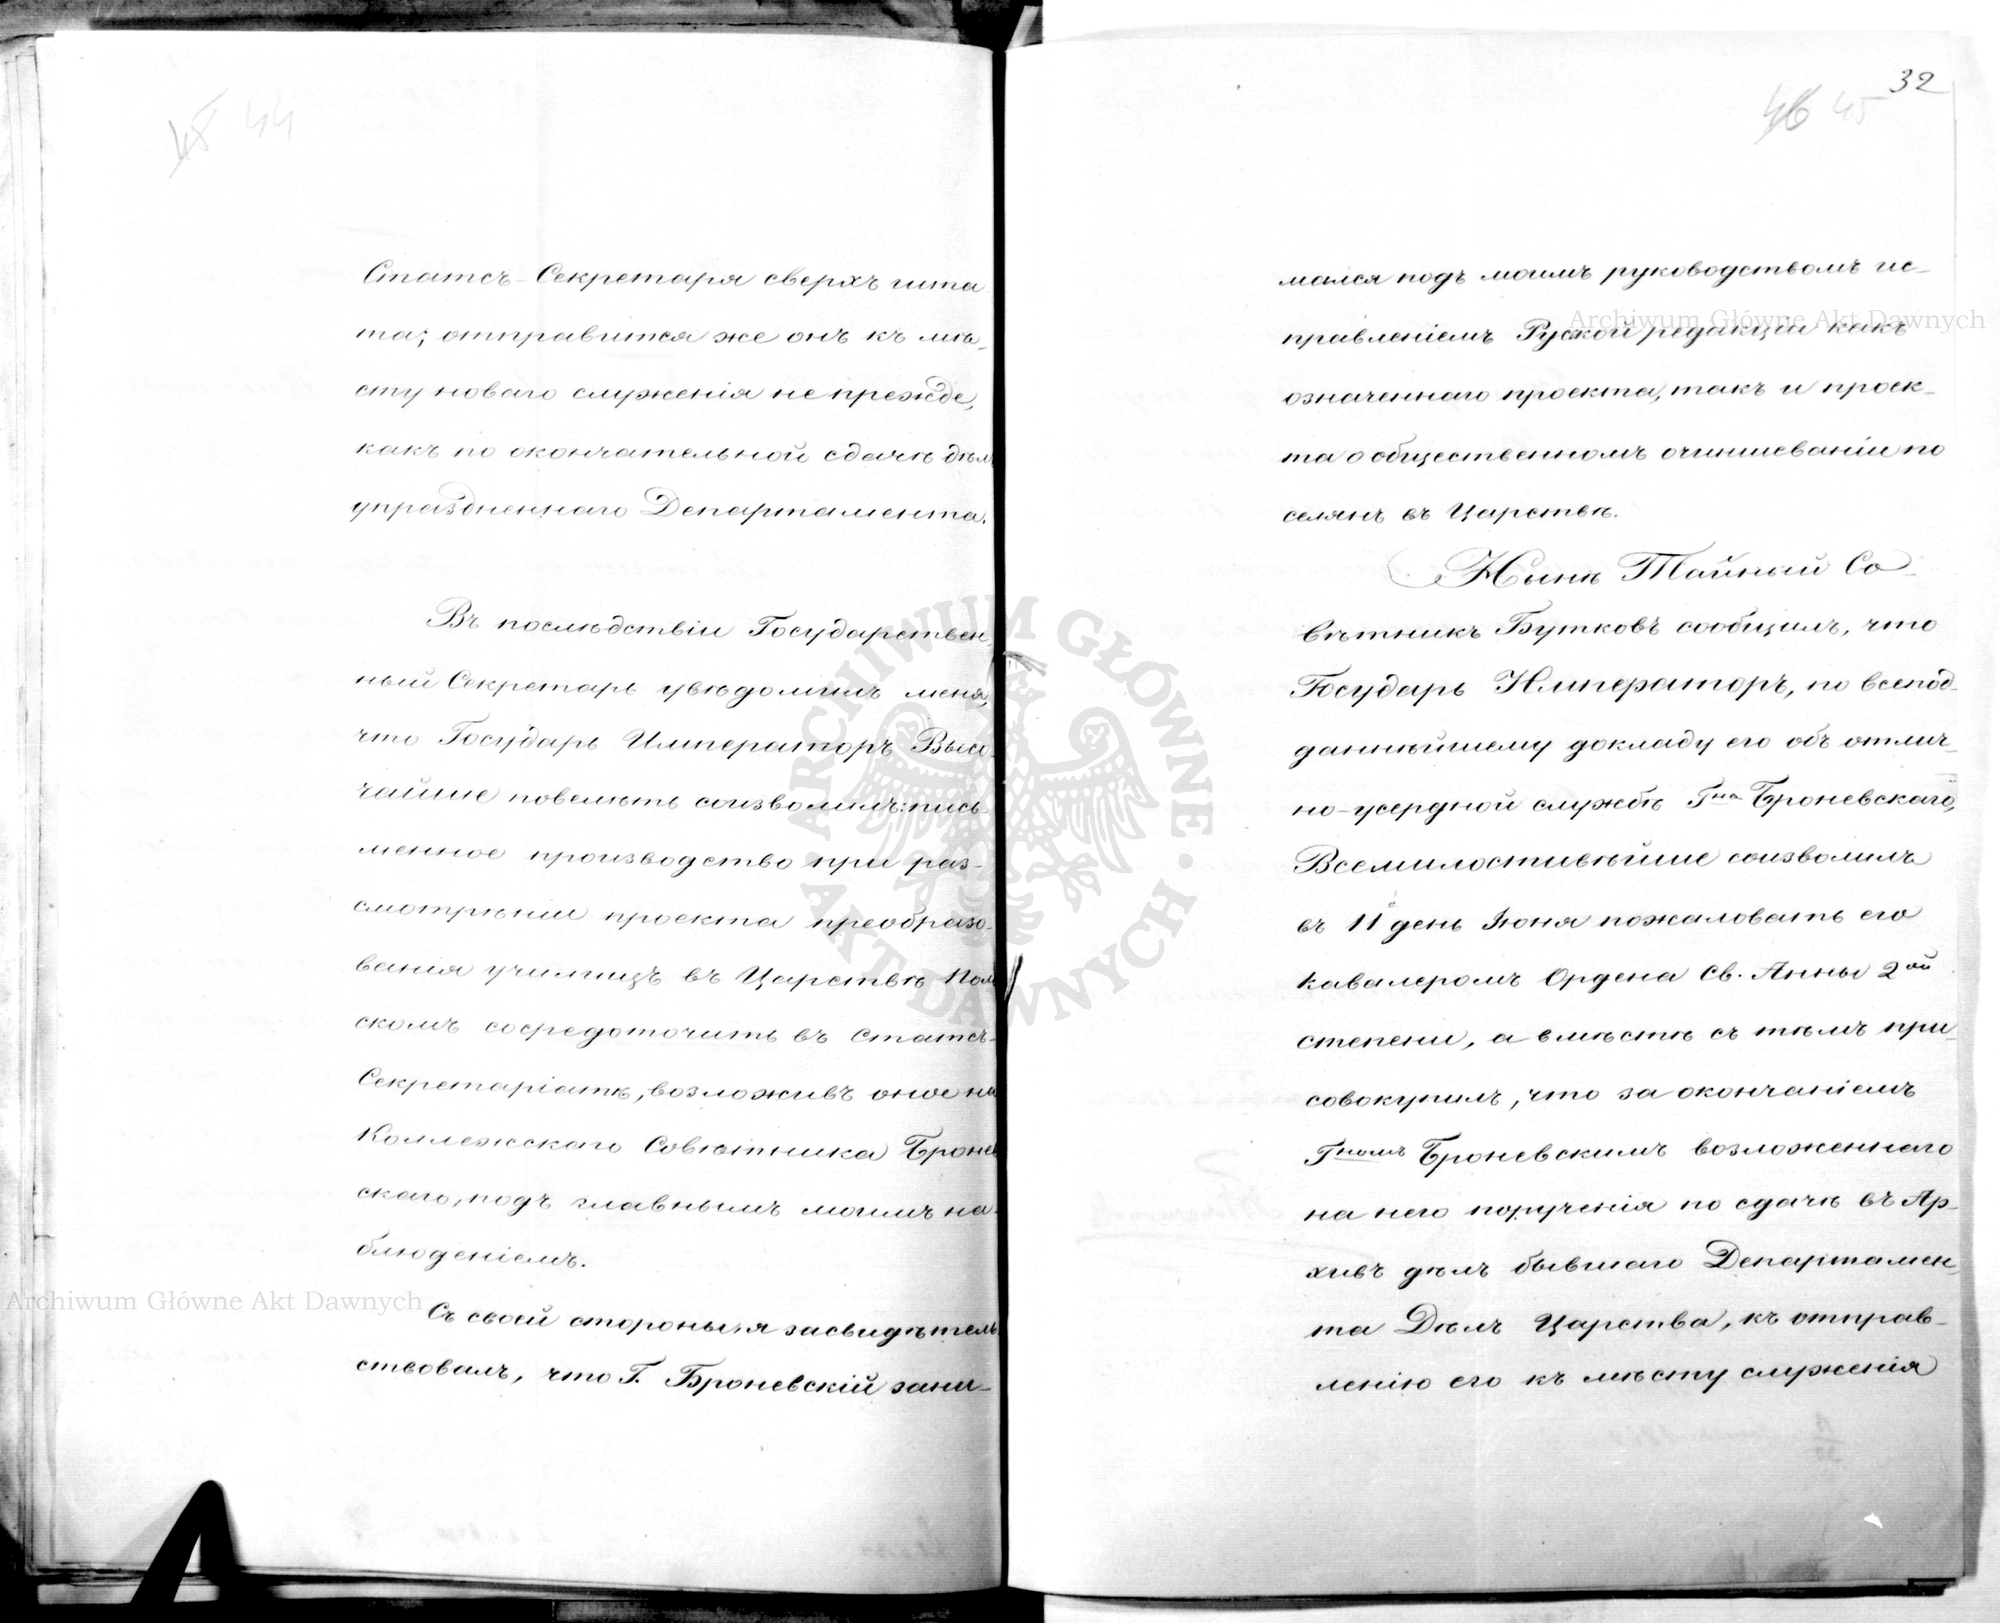 45 44
Статсъ-Секретаря сверхъ шта
та; отправится же онъ къ мѣ-
сту новаго служенія не прежде,
какъ по окончательной сдачѣ дѣлъ
упраздненнаго Департамента.
Въ послѣдствіи Государствен-
ный Секретарь увѣдомилъ меня,
что Государь Императоръ Высо-
чайше повелѣть соизволилъ: пись-
менное производство при раз-
смотрѣніи проекта преобразо-
ванія училищъ въ Царствѣ Поль
скомъ сосредоточить въ Статсъ-
Секретаріатѣ, возложивъ оное на
Коллежскаго Совѣтника Бронев
скаго, подъ главнымъ моимъ на-
блюденіемъ.
Съ своей стороны, я засвидѣтель
ствовалъ, что Г. Броневскій зани-
32
46 45
мался подъ моимъ руководствомъ ис-
правленіемъ Руской редакціи какъ
означеннаго проекта, такъ и проек-
та о общественномъ очиншеваніи по
селянъ въ Царствѣ.
Нынѣ Тайный Со-
вѣтникъ Бутковъ сообщилъ, что
Государь Императоръ, по всепод-
даннѣйшему докладу его объ отлич-
но-усердной службѣ Гна Броневскаго,
Всемилостивѣйше соизволилъ
въ 11 день Іюня пожаловать его
Кавалеромъ Ордена Св. Анны 2ой
степени, а вмѣстѣ съ тѣмъ при-
совокупилъ, что за окончаніемъ
Гномъ Броневскимъ возложеннаго
на него порученія по сдачѣ въ Ар-
хивъ дѣлъ бывшаго Департамен-
та Дѣлъ Царства, къ отправ-
ленію его къ мѣсту служенія
Archiwum Główne Akt Dawnych
Archiwum Główne Akt Dawnych
ARCHIWUM GŁÓWNE AKT DAWNYCH